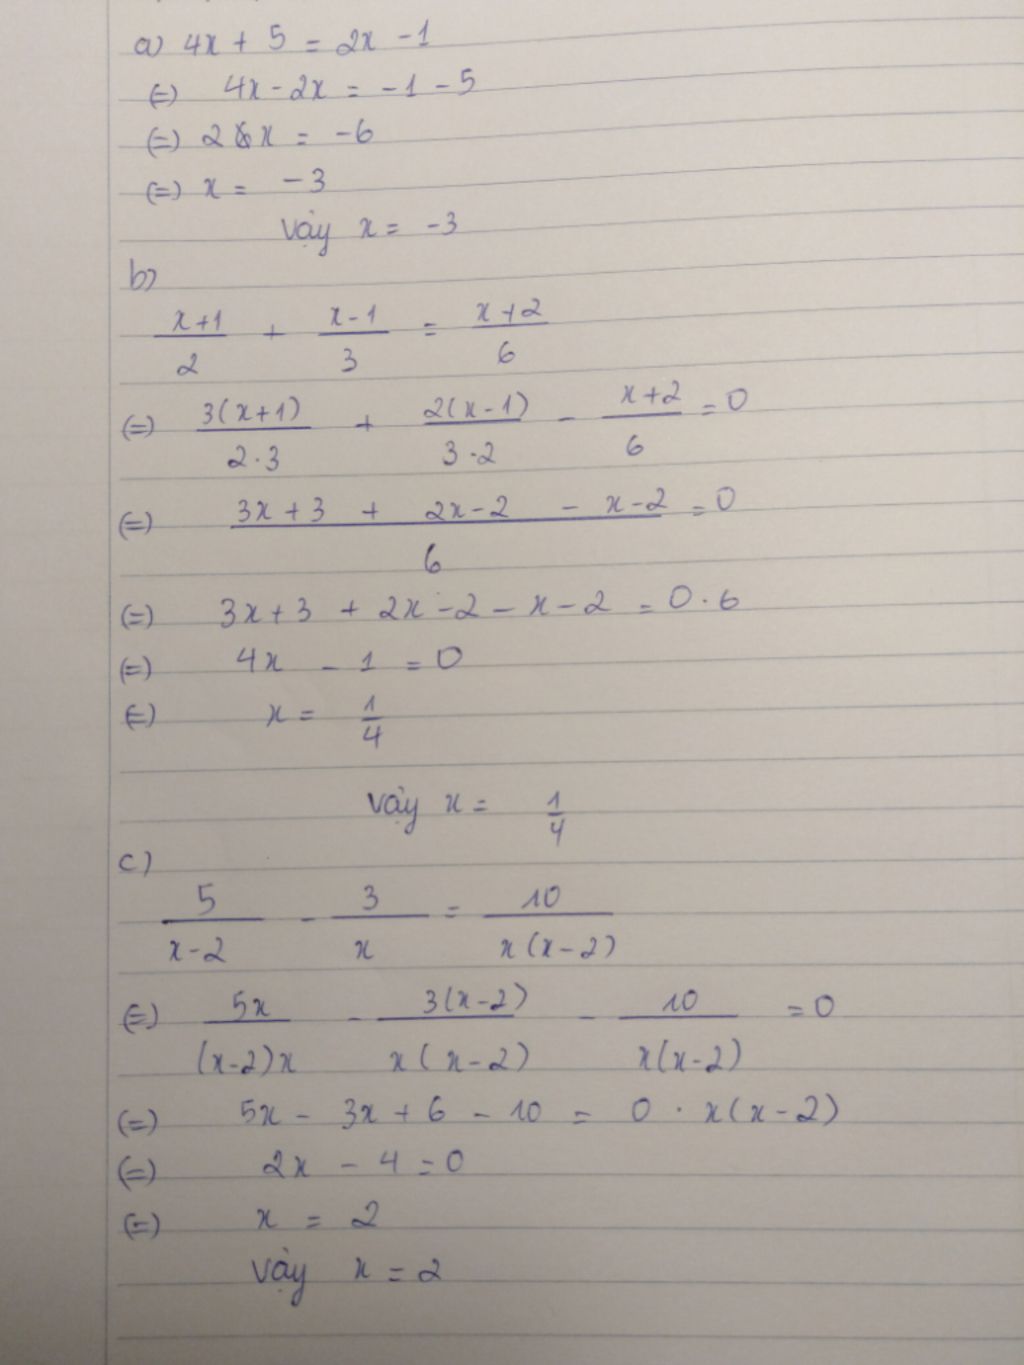 a) 4x + 5 = 2x - 1
(=) 4x - 2x = -1 - 5
(=) 2x = -6
(=) x = -3
Vậy x = -3
b)
(x+1)/2 + (x-1)/3 = (x+2)/6
(=) 3(x+1)/(2·3) + 2(x-1)/(3·2) - (x+2)/6 = 0
(=) (3x+3 + 2x-2 - x-2)/6 = 0
(=) 3x+3 + 2x-2-x-2 = 0·6
(=) 4x - 1 = 0
(=) x = 1/4
Vậy x = 1/4
c)
5/(x-2) - 3/x = 10/(x(x-2))
(=) 5x/((x-2)x) - 3(x-2)/(x(x-2)) - 10/(x(x-2)) = 0
(=) 5x - 3x + 6 - 10 = 0 · x(x-2)
(=) 2x - 4 = 0
(=) x = 2
Vậy x = 2